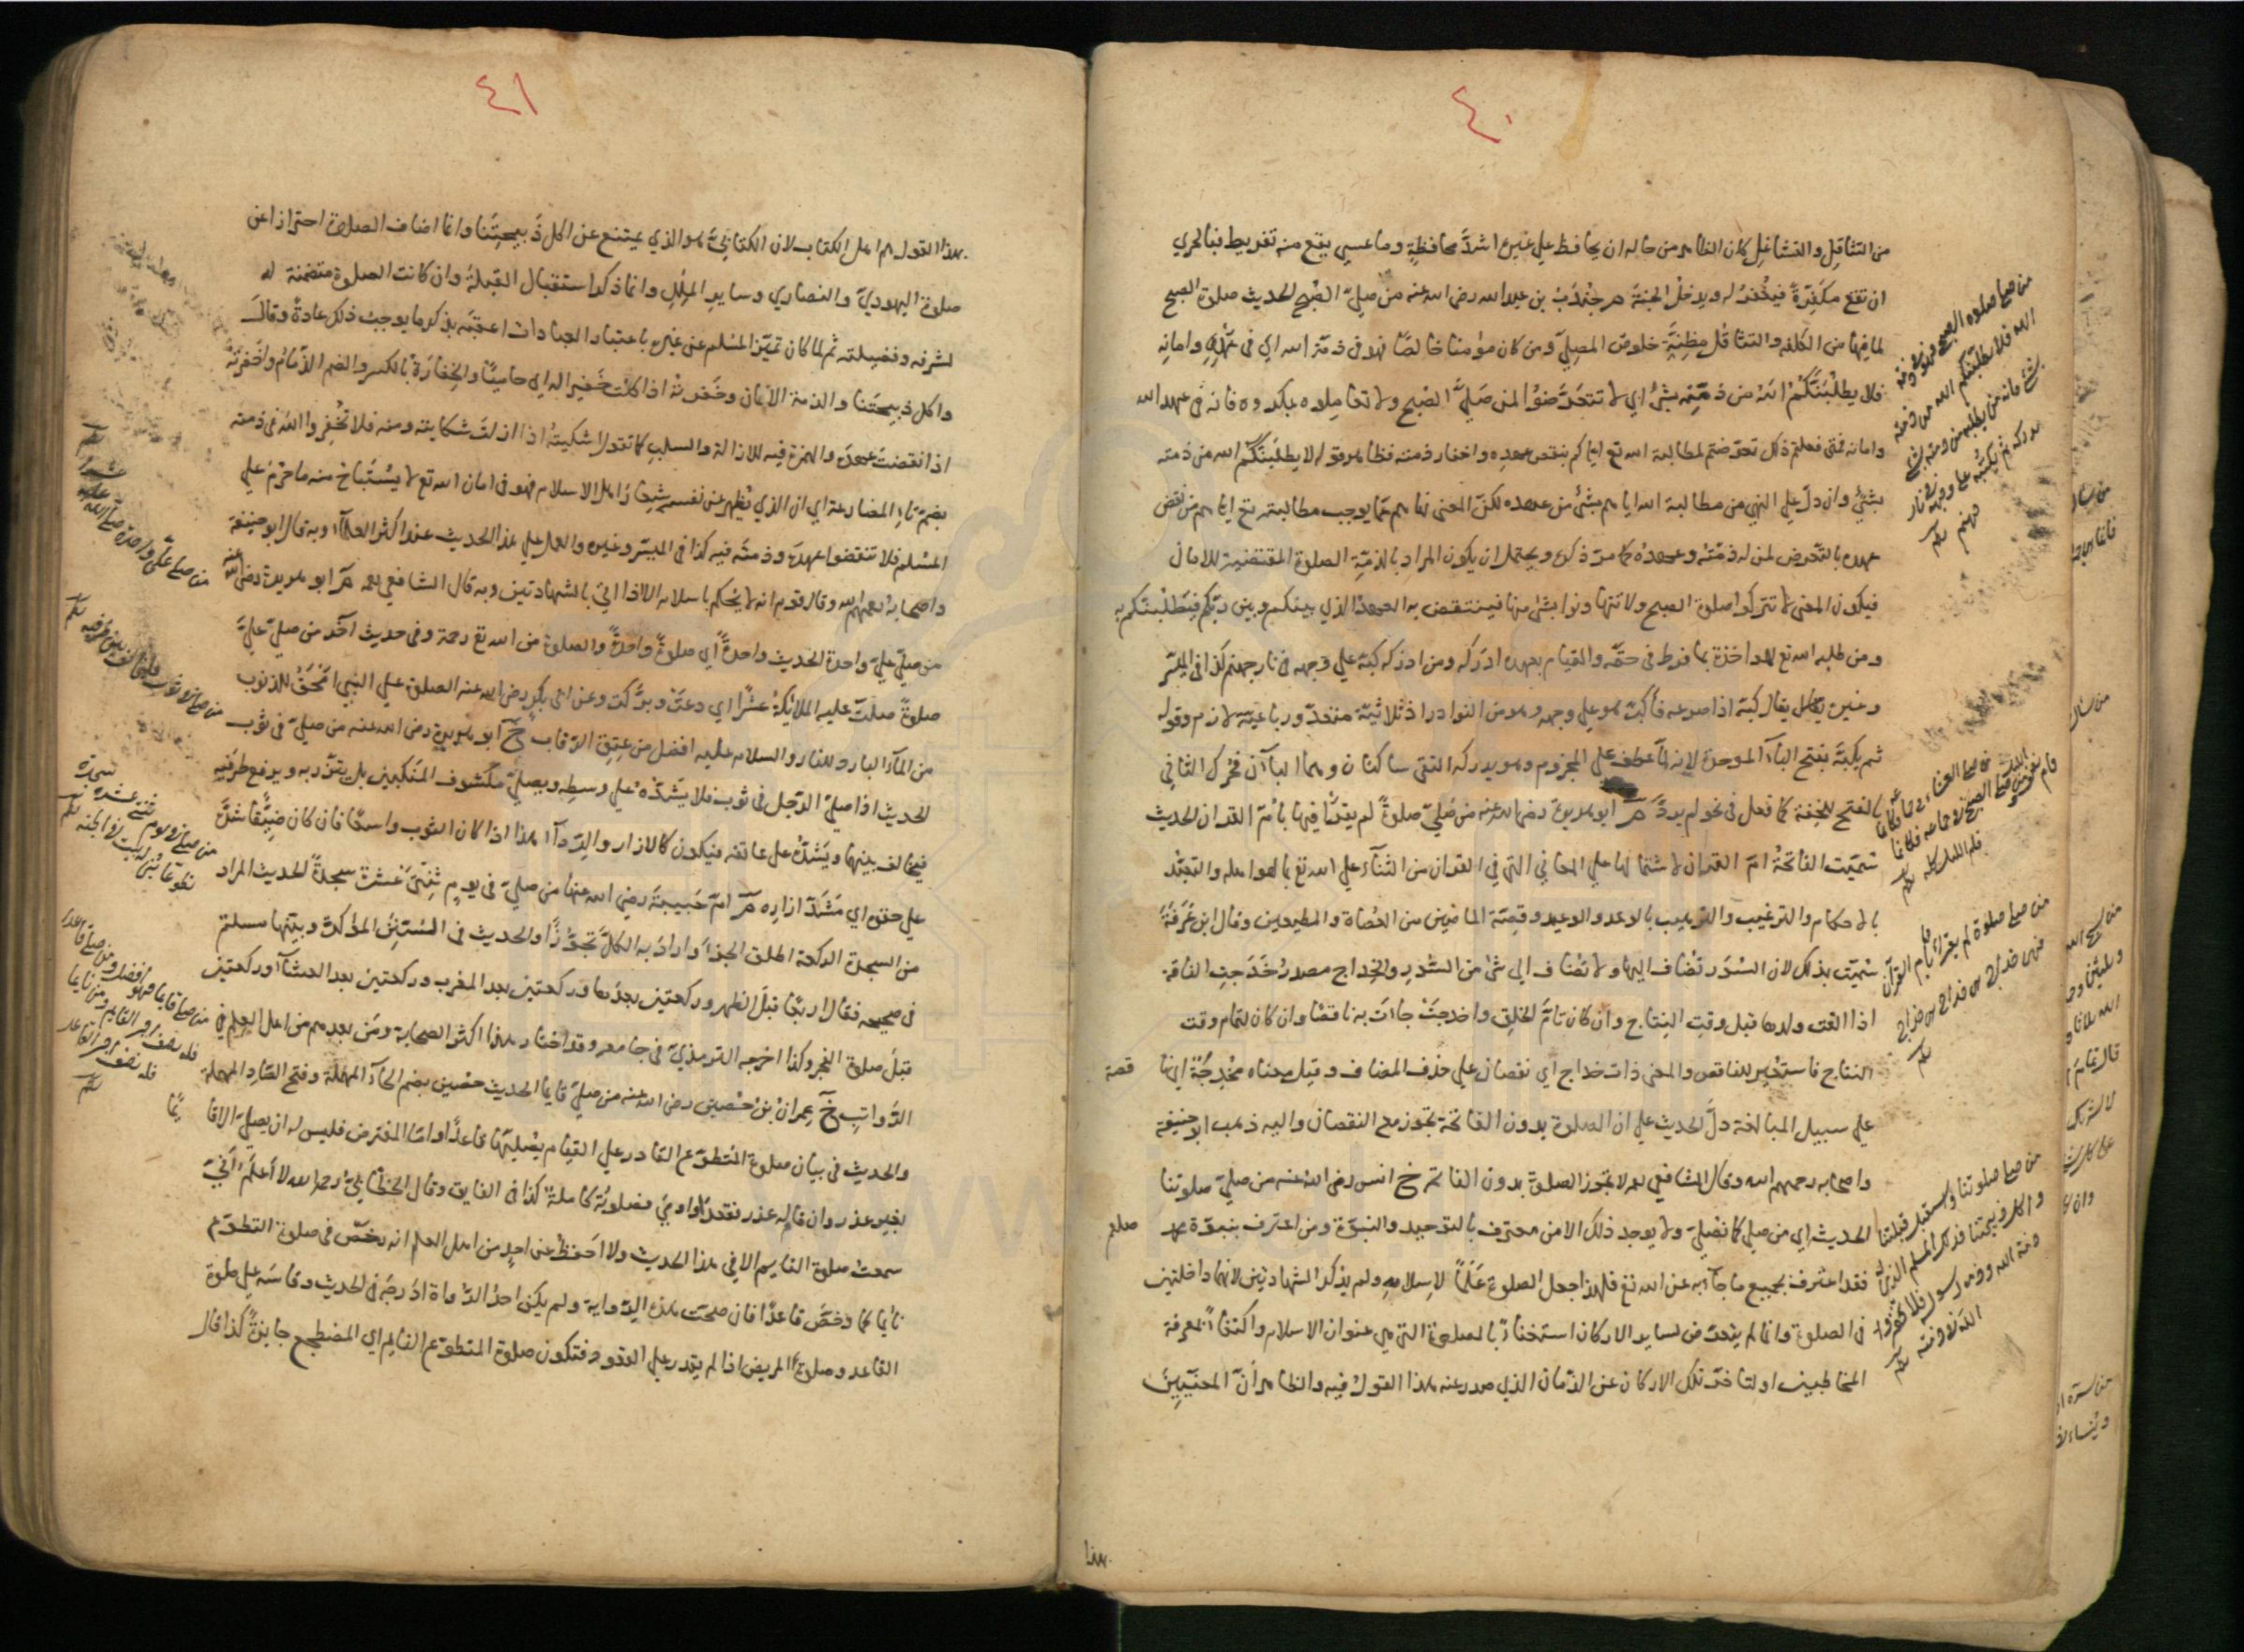 ٤٠
من التثاقل والتشاغل كان الظاهر من حاله ان يحافظ علي غيره اشدّ محافظةٍ وما عسي يقع منه تفريط فبالحري
ان تقع مكفّرةً فيُغْفَرُ له ويدخلُ الجنّةَ م جُنْدَبُ بن عبد الله رضي الله عنه من صليّ الصّبح الحديث صلوة الصبح
لما فيها من الكلفة والتثاقل مظِنّةُ خلوصِ المصِليّ ومن كان مؤمنا خالصًا فهو في ذمّة الله اي في عهْدِهِ وامانِهِ
فلا يطلُبَنّكُمْ اللهُ من ذمّته بشئ اي لا تتعَرّضوْا لمن صَليَّ الصّبح ولا تعاملوه بمكروه فانه في عهد الله
وامانه فمتى فعلتم ذلك تعرّضتم لمطالبة الله تع اياكم بنقص عهدِه واخفار ذمته فظاهر قوله لا يطلبَنّكُم الله من ذمته
بشئ وان دلّ علي النهي من مطالبة الله اياهم بشئ من عهده لكنّ المعني نهاهم عمّا يوجب مطالبته تع اياهم من نقض
عهده بالتّعرض لمن له ذمّتهُ وعهدُهُ كما مرّ ذكره ويحتمل ان يكون المراد بالذمّة الصلوة المقتضية للامان
فيكون المعني لا تتركوا صلوة الصبح ولا تتهاونوا بشئ منها فينتقض به العهدُ الذي بينكم وبين ربّكم فيَطْلُبَنّكم به
ومن طلبه الله تع للمؤاخذة بما فرط في حقّه والقيام بعهده ادرَكه ومن ادركه كبّهُ علي وجهه في نار جهنم كذا في الميسّر
وغيره يقال كبّهُ اذا صرعه فأكبّ هو علي وجهه وهو من النوادر اذ ثلاثيّهُ متعدّ ورباعيّهُ لازم وقوله
ثم يكبّهُ بفتح الباء الموحدة لانه لما عطف علي المجزوم وهو يدركه التقي ساكنان وهما الباآن فحُرك الثاني
بالفتح للخِفّة كما فعل في نحو لم يردَّ م ابو هريرة رضي الله عنه من صَليَّ صلوةً لم يقرأ فيها بأمّ القرآن الحديث
سُمّيت الفاتحةُ امّ القرآن لاشتمالها علي المعاني التي في القرآن من الثناء علي الله تع بما هو اهله والتعبّد
بالاحكام والترغيب والترهيب بالوعد والوعيد وقصّة الماضين من العُصاة والمطيعين وقال ابن عَرَفَة
سُمّيت بذلك لان السُوَر تُضاف اليها ولا تُضاف الي شئ من السُّوَرِ والخِداج مصدرُ خَدَجتِ الناقة
اذا القت ولدها قبل وقت النِتاج وان كان تامَّ الخلق واخدجَتْ جاءت به ناقصًا وان كان لتمام وقت
النتاج فاستعير للناقص والمعني ذات خداج اي نقصان علي حذف المضاف وقيل معناه مُخْدِجَةٌ اي ناقصة
علي سبيل المبالغة دلّ الحديث علي ان الصلوة بدون الفاتحة تجوز مع النقصان واليه ذهب ابو حنيفة
واصحابه رحمهم الله وقال الشافعي رحمه لا تجوز الصلوة بدون الفاتحة خ انس رضي الله عنه من صليّ صلوتنا
الحديث اي من صلي كما نُصَليّ ولا يوجد ذلك الا من معترف بالتوحيد والنبوّة ومن اعترف بنبوّة محمد صلعم
فقد اعترف بجميع ما جاء به عن الله تع فلهذا جعل الصلوة عَلَمًا لاسلامه ولم يذكر الشهادتين لانهما داخلتين
في الصلوة وانما لم يتعرّض لساير الاركان استغناءً بالصلوة التي هي عنوان الاسلام واكتفاءً بمعرفة
المخاطبين او لتاخّر تلك الاركان عن الزّمان الذي صدر عنه هذا القول فيه والظاهر انّ المعنيّينَ
هذا
من صلي صلوة الصبح فهو في ذمة
الله فلا يطلبنكم الله من ذمته
بشئ فانه من يطلبه من ذمته بشئ
يدركه ثم يكبه علي وجهه في نار
جهنم
من صلي العشاء في جماعة فكانما
قام نصف الليل ومن صلي الصبح في جماعة فكانما
صلي الليل كله
من صلي صلوة لم يقرأ فيها بام القرآن
فهي خداج هي خداج هي خداج
من صلي صلوتنا واستقبل قبلتنا
واكل ذبيحتنا فذلك المسلم الذي له
ذمة الله وذمة رسوله فلا تخفروا
الله في ذمته
٤١
بهذا القول هم اهل الكتاب لان الكتابيَّ هو الذي يمتنع عن اكل ذَبيحتِنا وانما اضاف الصلوة احترازا عن
صلوة اليهوديّ والنصاري وساير المِلَلِ وانما ذكر استقبال القبلة وان كانت الصلوة متضمنة له
لشرفه وفضيلته ثم لما كان تميّز المسلم عن غيره باعتبار العبادات اعقبَه بذكر ما يوجبُ ذلك عادةً وقال
واكل ذبيحتَنا والذمة الامان وخَفَرتُهُ اذا كنتَ خَفيرا له اي حاميًا والخِفارَة بالكسر والضم الذّمامُ واخفرتَه
اذا نقضتَ عهدَه والهمزة فيه للازالة والسلب كما تقول اشكيتهُ اذا ازلتَ شكايته ومنه فلا تُخْفِروا الله في ذمته
بضمّ تاء المضارعة اي ان الذي يُظهر عن نفسه شِعارَ اهل الاسلام فهو في امان الله تع لا يسْتَباح منه ما حرّمَ علي
المسْلم فلا تنقضوا عهدَه وذمتَه فيه كذا في الميسّر وغيره والعمل علي هذا الحديث عند اكثر العلماء وبه قال ابو حنيفة
واصحابه رحمهم الله وقال قوم انه لا يحْكم باسلامه الا اذا اتي بالشهادتين وبه قال الشافعي رحمه م ابو هريرة رضي الله عنه
من صليّ عليّ واحدة الحديث واحدةً اي صلوةً واحدةً والصلوة من الله تع رحمة وفي حديث آخر من صليّ عليّ
صلوةً صلتْ عليه الملائكةُ عشْرًا اي دعَتْ وبرَّكت وعن ابي بكر رضي الله عنه الصلوة علي النبي امْحَقُ للذنوب
من الماء البارد للنار والسلام عليه افضل من عِتقِ الرّقاب خ ابو هريرة رضي الله عنه من صليّ في ثوب
الحديث اذا صليّ الرّجل في ثوب فلا يشدّهُ علي وسطِه ويصليّ مكشوف المَنكبين بل يتّزر به ويرفع طرفيه
فيخالف بينهما ويشدُّهُ علي عاتقه فيكون كالازار والرّداء هذا اذا كان الثوب واسعًا فان كان ضيّقًا شدَّ
علي حَقوه اي مَشَدَّ ازاره م امّ حَبيبةَ رضي الله عنها من صليّ في يومٍ ثِنتَيْ عَشرةَ سجدةً الحديث المراد
من السجدة الركعة اطلق الجزءَ وارادَ به الكلّ تجوّزًا والحديث في السُنَنِ المؤكدة وبيّنها مسلم
في صحيحه فقال اربعًا قبلَ الظهر وركعتين بعدَها وركعتين بعد المغرب وركعتين بعد العشاء وركعتين
قبلَ صلوة الفجر وكذا اخرجه الترمذيّ في جامعه وقد اختار هذا اكثر الصحابة ومَن بعدهم من اهل العلم في
الرَّواتب خ عِمرانُ بْنُ حُصين رضي الله عنه من صليّ قايما الحديث حصين بضم الحاء المهملة وفتح الصّاد المهملة
والحديث في بيان صلوة المُتطوّع القادر علي القيام يصَليّها قاعدًا وامّا المفترض فليس له ان يصليّ الا قايمًا
بغير عذر وان قام له عذر فقعدَ او اومئ فصلوتُهُ كاملةٌ كذا في الفايق وقال الخطّابيّ رحمه الله لا اعلمُ انّيّ
سمعتُ صلوة النايم الا في هذا الحديث ولا احفظُ عن احدٍ من اهل العلم انه رخّص في صلوة التطوّع
نايما كما رخصَّ قاعدًا فان صحّت هذه الرّواية ولم يكن احدُ الرّواة ادْرجَهُ في الحديث وقاسَه علي صلوة
القاعد وصلوة المريض اذا لم يقدر علي القعود فتكون صلوة المتطوّع النايم اي المضطجع جايزةً كذا قال
من صلي علي واحدة صلي الله عليه
عشرا
من صلي في ثوب واحد
فليخالف بين طرفيه
من صلي في يوم ثنتي عشرة سجدة
تطوعا بني له بيت في الجنة
من صلي قايما فهو افضل ومن صلي قاعدا
فله نصف اجر القايم ومن صلي نايما
فله نصف اجر القاعد